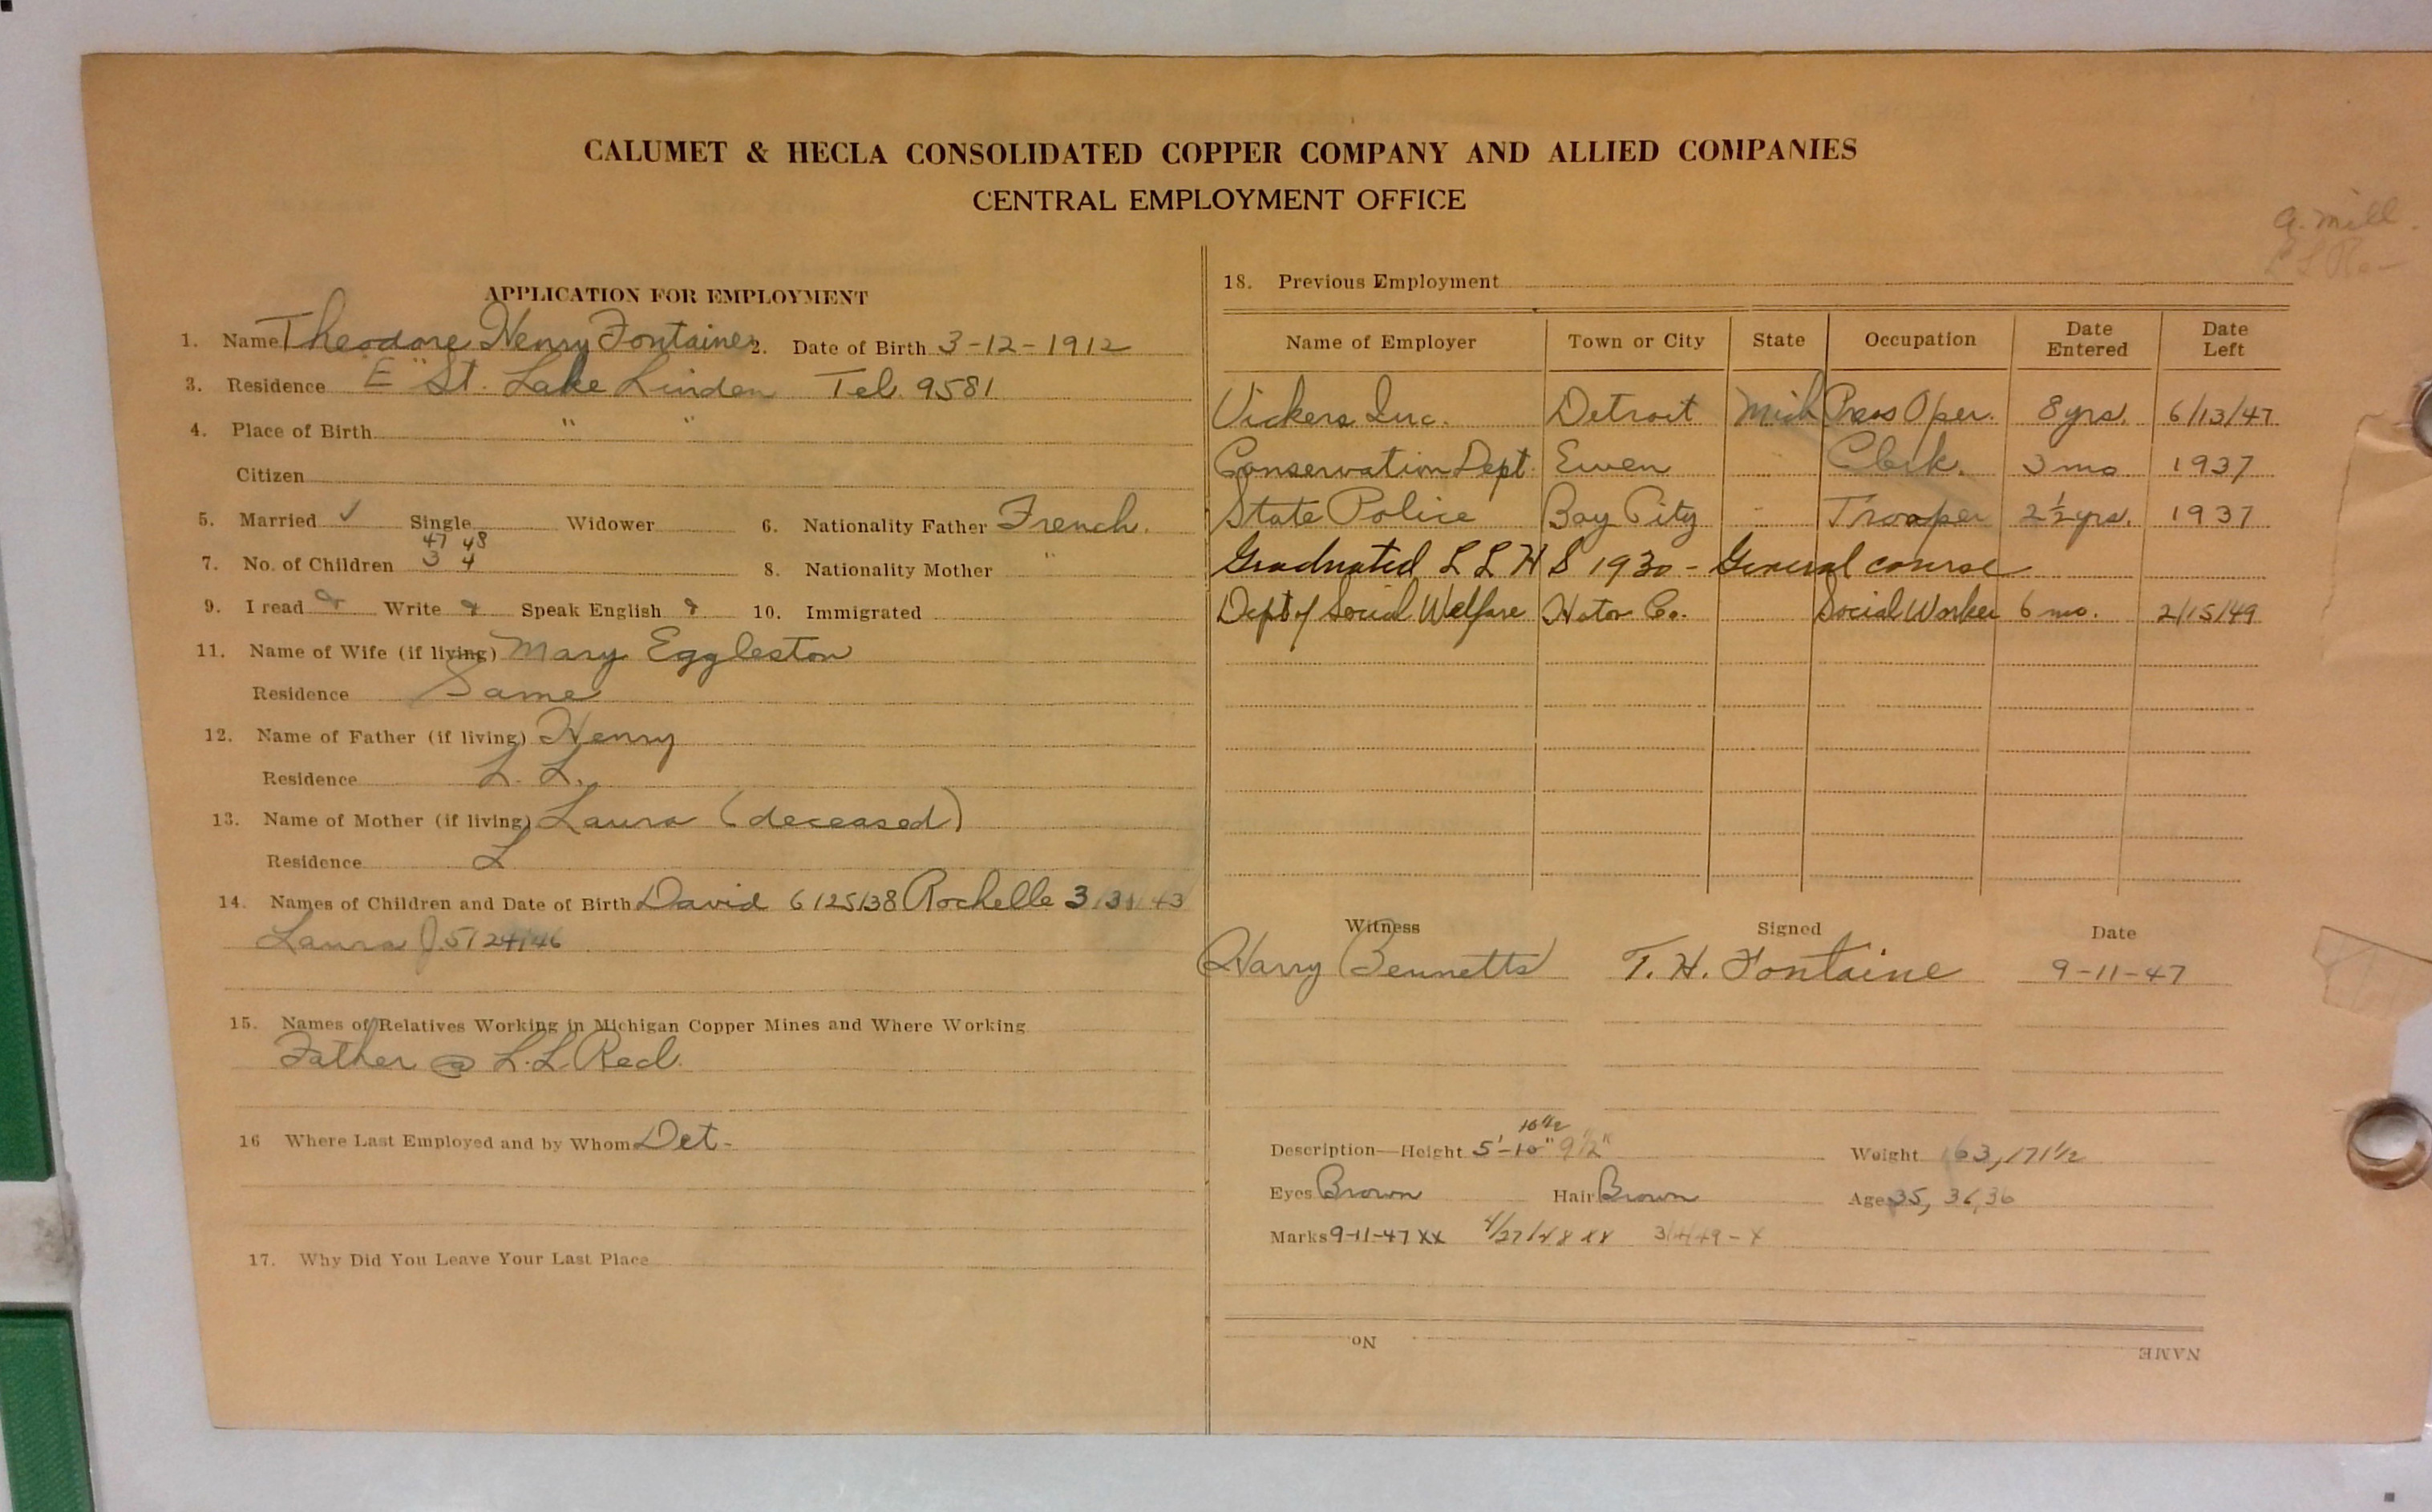 CALUMET & HECLA CONSOLIDATED COPPER COMPANY AND ALLIED COMPANIES
CENTRAL EMPLOYMENT OFFICE
a. mill
APPLICATION FOR EMPLOYMENT
1. Name Theodore Henry Fontaine 2. Date of Birth 3-12-1912
3. Residence "E" St. Lake Linden Tel. 9581
4. Place of Birth " "
Citizen
5. Married ✓ Single Widower 6. Nationality Father French.
47 48
7. No. of Children 3 4 8. Nationality Mother "
9. I read Write Speak English 10. Immigrated
11. Name of Wife (if living) Mary Eggleston
Residence Same
12. Name of Father (if living) Henry
Residence L. L.
13. Name of Mother (if living) Laura (deceased)
Residence L
14. Names of Children and Date of Birth David 6/25/38 Rochelle 3/31/43
Laura J. 5/24/46
15. Names of Relatives Working in Michigan Copper Mines and Where Working
Father @ L.L. Recl.
16 Where Last Employed and by Whom Det-
17. Why Did You Leave Your Last Place
18. Previous Employment
Name of Employer Town or City State Occupation Date Entered Date Left
Vickers Inc. Detroit Mich Press Oper. 8 yrs. 6/13/47
Conservation Dept Ewen " Clerk. 3 mo 1937
State Police Bay City " Trooper 2½ yrs. 1937
Graduated L L H S 1930 - General course
Dept of Social Welfare Hoton Co. Social Worker 6 mo. 2/15/49
Witness Signed Date
Harry Bennetts T. H. Fontaine 9-11-47
10½
Description—Height 5'-10" 9½" Weight 163, 171½
Eyes Brown Hair Brown Age 35, 36, 36
Marks 9-11-47 XX 4/27/48 XX 3/4/49 - X
No.
NAME